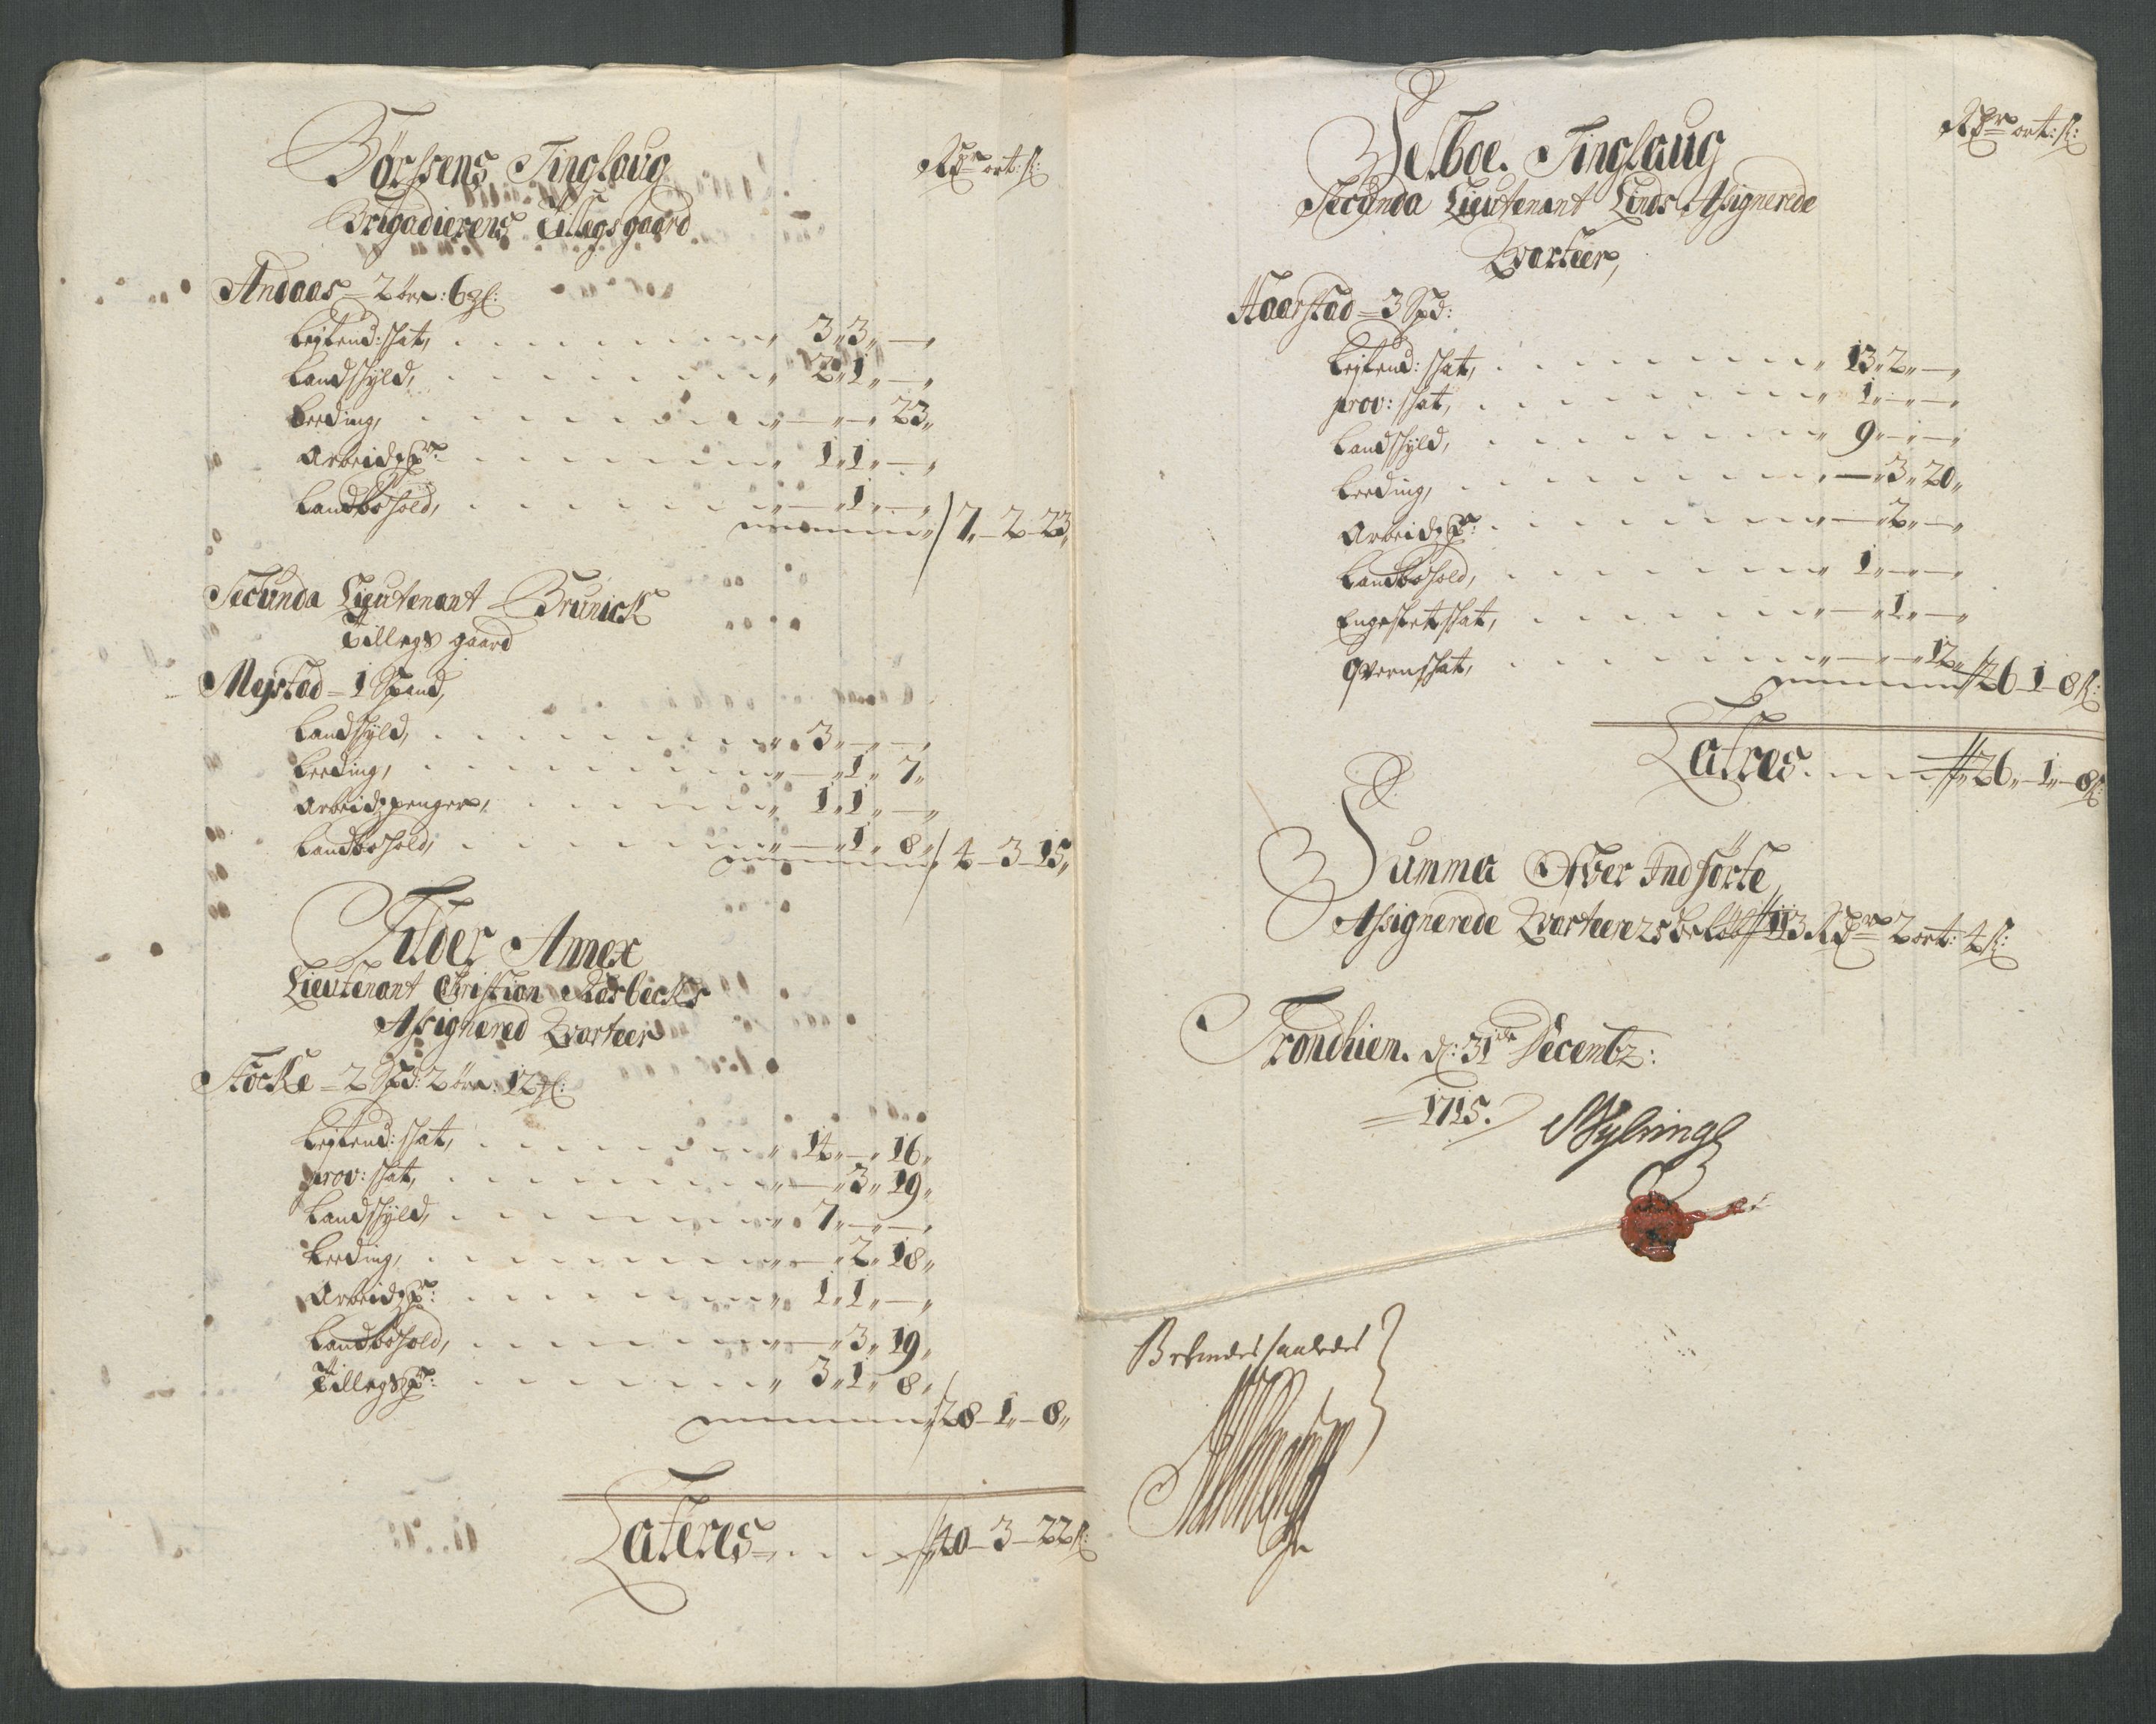 Börssens Tinglaug
Rdr ort: s:
Brigadierens Tillegsgaard
Andaas = 2 öre: 6 gl:
Leytend: skat, 3 " 3 " — "
Landskyld, 2 " 1 " — "
Leeding, — " — " 23 "
Arbeidz Pr: 1 " 1 " — "
Landbohold, — " 1 " — "
7 " — 2 — 23 "
Secunda Lieutenant Brunick
Tillegs gaard
Mejstad = 1 Spand,
Landskyld, 3 " — " — "
Leeding, — " 1 " 7 "
Arbeidzpenger, 1 " 1 " — "
Landbohold, — " 1 " 8 "
4 — 3 — 15 "
Tilder Annex
Lieutenant Christian Rosbecks
Assignered Qvarteer
Stocke = 2 Spd: 2 öre: 12 gl:
Leytend: skat, 14 " — " 16 "
prov: skat, — " 3 " 19 "
Landskyld, 7 " — " — "
Leeding, — " 2 " 18 "
Arbeidz Pr: 1 " 1 " — "
Landbohold, — " 3 " 19 "
Tillegs Pr: 3 " 1 " 8 "
28 — 1 " — 8 "
Lateres 40 — 3 — 22 s:
Selboe Tinglaug
Rdr ort: s:
Secunda Lieutenant Linds Assignerede
Qvarteer,
Haarstad = 3 Spd:
Leytend: skat, 13 " 2 " — "
prov: skat, 1 " — " — "
Landskyld, 9 " — " — "
Leeding, — " 3 " 20 "
Arbeidz Pr: — " 2 " — "
Landbohold, 1 " — " — "
Engeslet skat, — " 1 " — "
Qvernskat, — " — " 12 "
26 — 1 — 8 s:
Latres 26 " — 1 " — 8 s:
Summa Ofver Indförte
Assignerede Qvarteerers belöb 113 Rdr 2 ort: 4 s:
Trondhiem. d: 31de Decembr:
1715.
Befindes saaledes